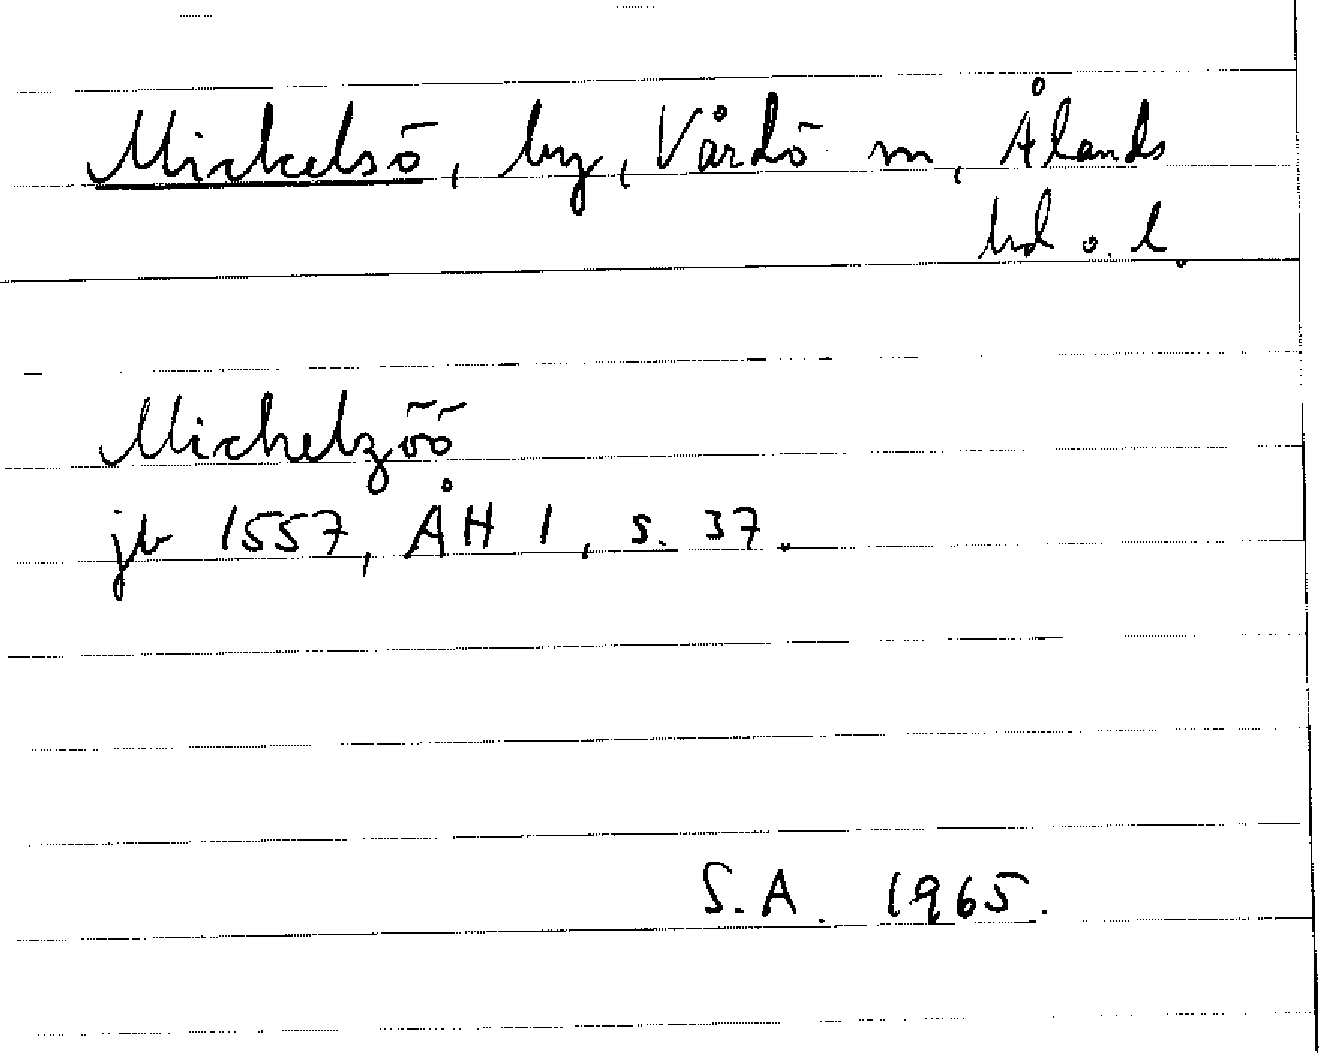 Mickelsö, by, Vårdö sn, Ålands
hd o. l.
Michelzöö
jb 1557, ÅH 1, s. 37.
S.A. 1965.